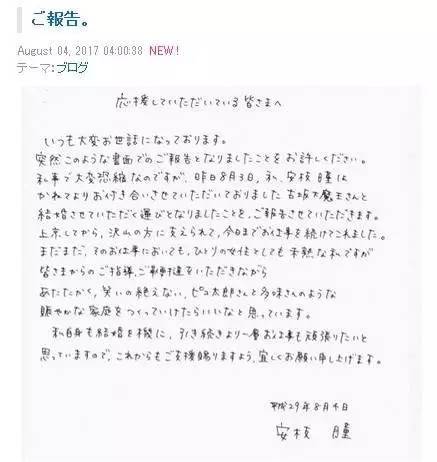 ご報告。
August 04, 2017 04:00:38 NEW!
テーマ:ブログ
応援していただいている皆さまへ
いつも大変お世話になっております。
突然このような書面でのご報告となりましたことをお許しください。
私事で大変恐縮なのですが、昨日8月3日、私、安枝瞳は
かねてよりお付き合いさせていただいておりました古坂大魔王さんと
結婚させていただく運びとなりましたことを、ご報告させていただきます。
上京してから、沢山の方に支えられて、今日までお仕事を続けてこれました。
まだまだ、そのお仕事においても、ひとりの女性としても未熟な私ですが
皆さまからのご指導、ご鞭撻をいただきながら
あたたかく、笑いの絶えない、ピコ太郎さんと多味さんのような
賑やかな家庭をつくっていけたらいいなと思っています。
私自身も結婚を機に、引き続きより一層お仕事も頑張りたいと
思っていますので、これからもご支援賜りますよう、宜しくお願い申し上げます。
平成29年8月4日
安枝 瞳